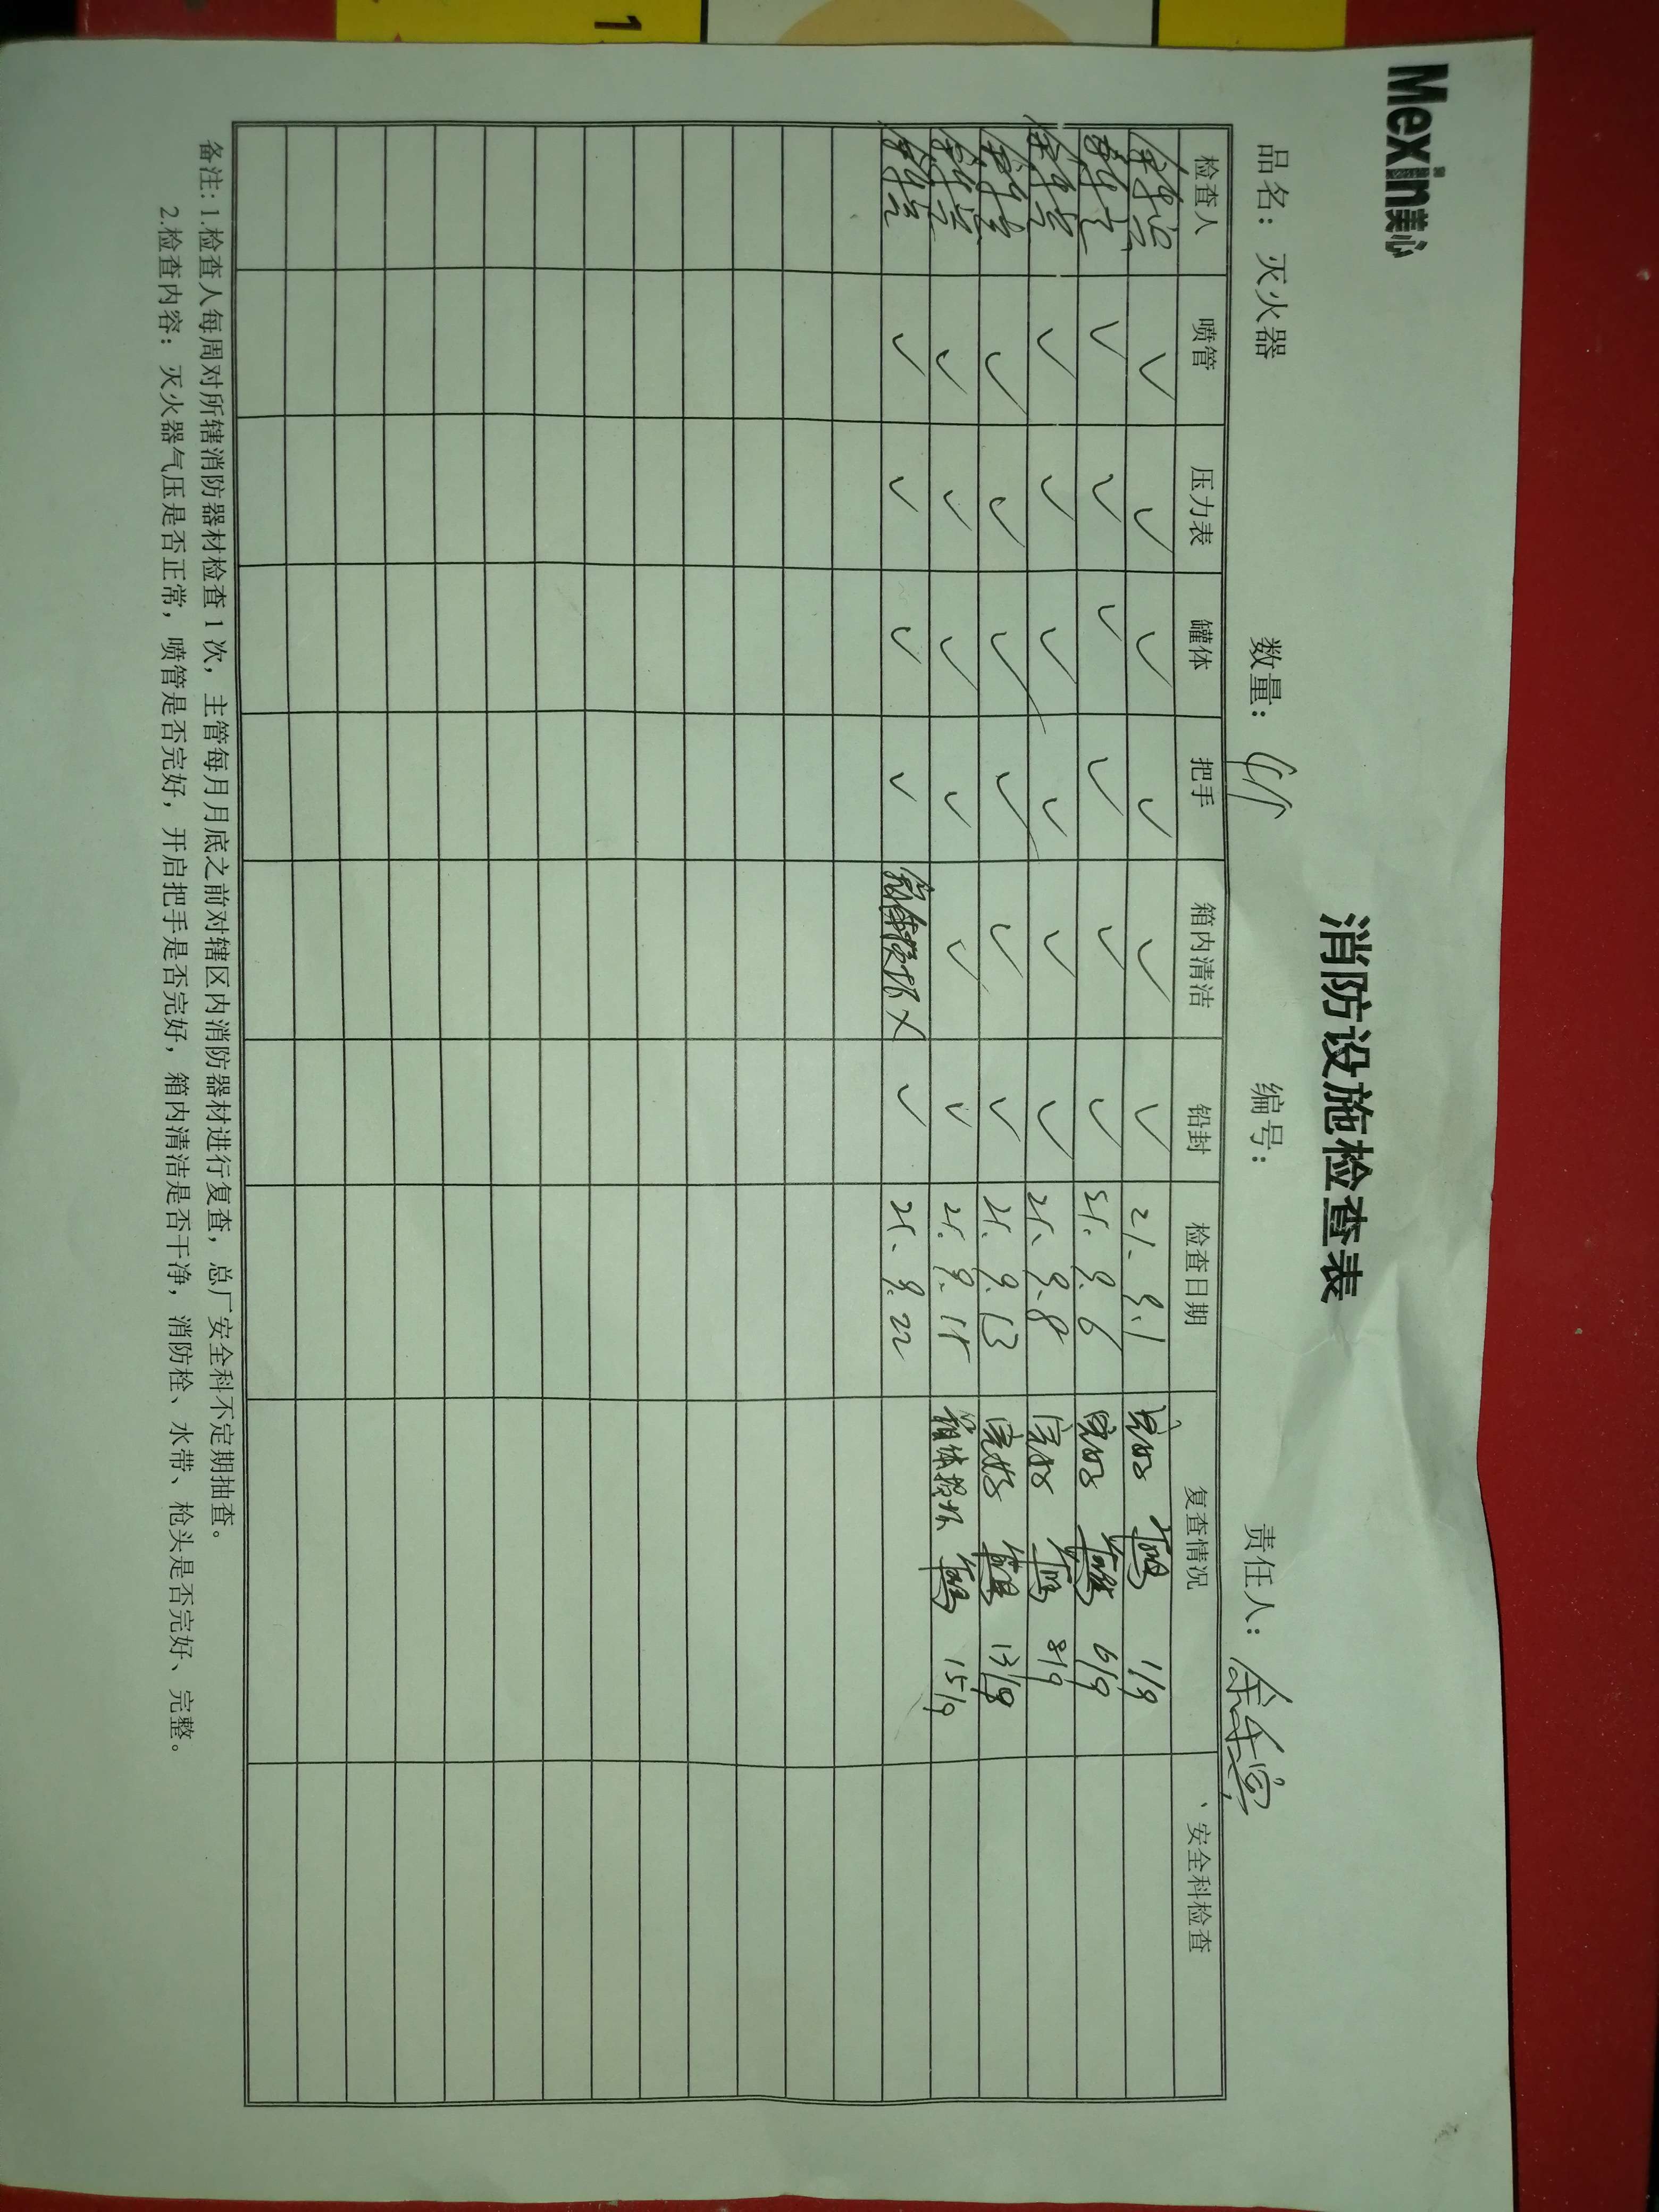 1
Mexin美心
消防设施检查表
品名：灭火器 数量：4个 编号： 责任人：
检查人 喷管 压力表 罐体 把手 箱内清洁 铅封 检查日期 复查情况 安全科检查
✓ ✓ ✓ ✓ ✓ ✓ 21.9.1 完好 1/9
✓ ✓ ✓ ✓ ✓ ✓ 21.9.6 完好 6/9
✓ ✓ ✓ ✓ ✓ ✓ 21.9.8 完好 8/9
✓ ✓ ✓ ✓ ✓ ✓ 21.9.13 完好 13/9
✓ ✓ ✓ ✓ ✓ ✓ 21.9.15 箱体损坏 15/9
✓ ✓ ✓ ✓ 损坏 ✗ ✓ 21.9.22
备注：1.检查人每周对所辖消防器材检查1次，主管每月月底之前对辖区内消防器材进行复查，总厂安全科不定期抽查。
2.检查内容：灭火器气压是否正常，喷管是否完好，开启把手是否完好，箱内清洁是否干净，消防栓、水带、枪头是否完好、完整。